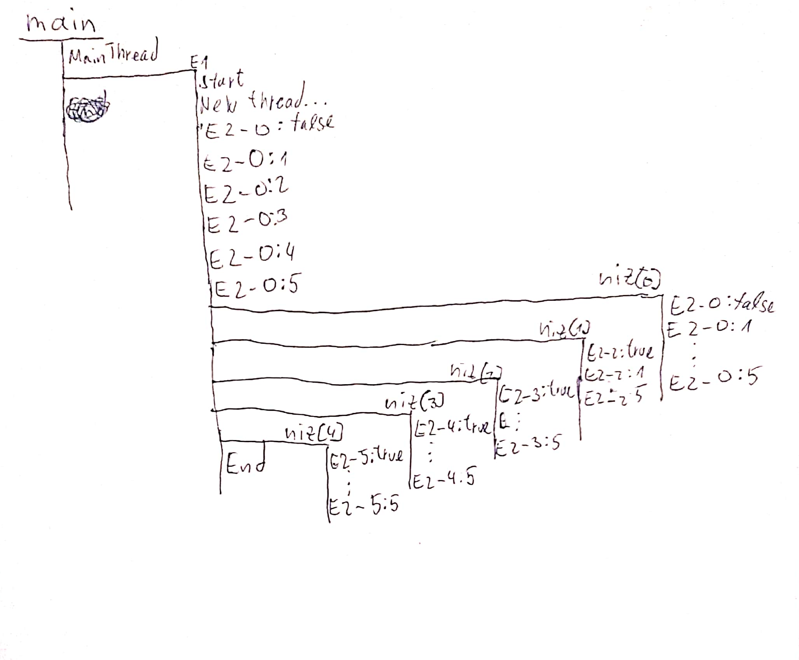 main
MainThread
E1
Start
New thread...
E2-0:false
E2-0:1
E2-0:2
E2-0:3
E2-0:4
E2-0:5
niz[0]
E2-0:false
E2-0:1
E2-0:5
niz[1]
E2-2:true
E2-2:1
E2-2 5
niz[2]
E2-3:true
E
E2-3:5
niz[3]
E2-4:true
E2-4.5
niz[4]
E2-5:true
E2-5:5
End